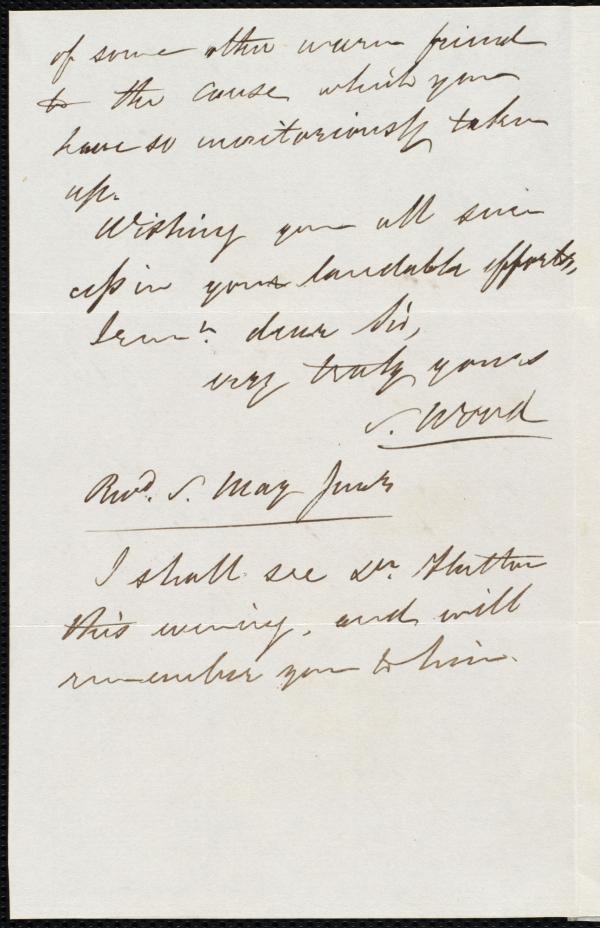 of some other warm friend
to the cause which you
have so meritoriously taken
up.
Wishing you all suc-
cess in your laudable efforts,
I rem.n dear Sir,
very truly yours
S. Wood
Revd. S. May Junr
I shall see Dr. Hutton
this evening, and will
remember you to him.